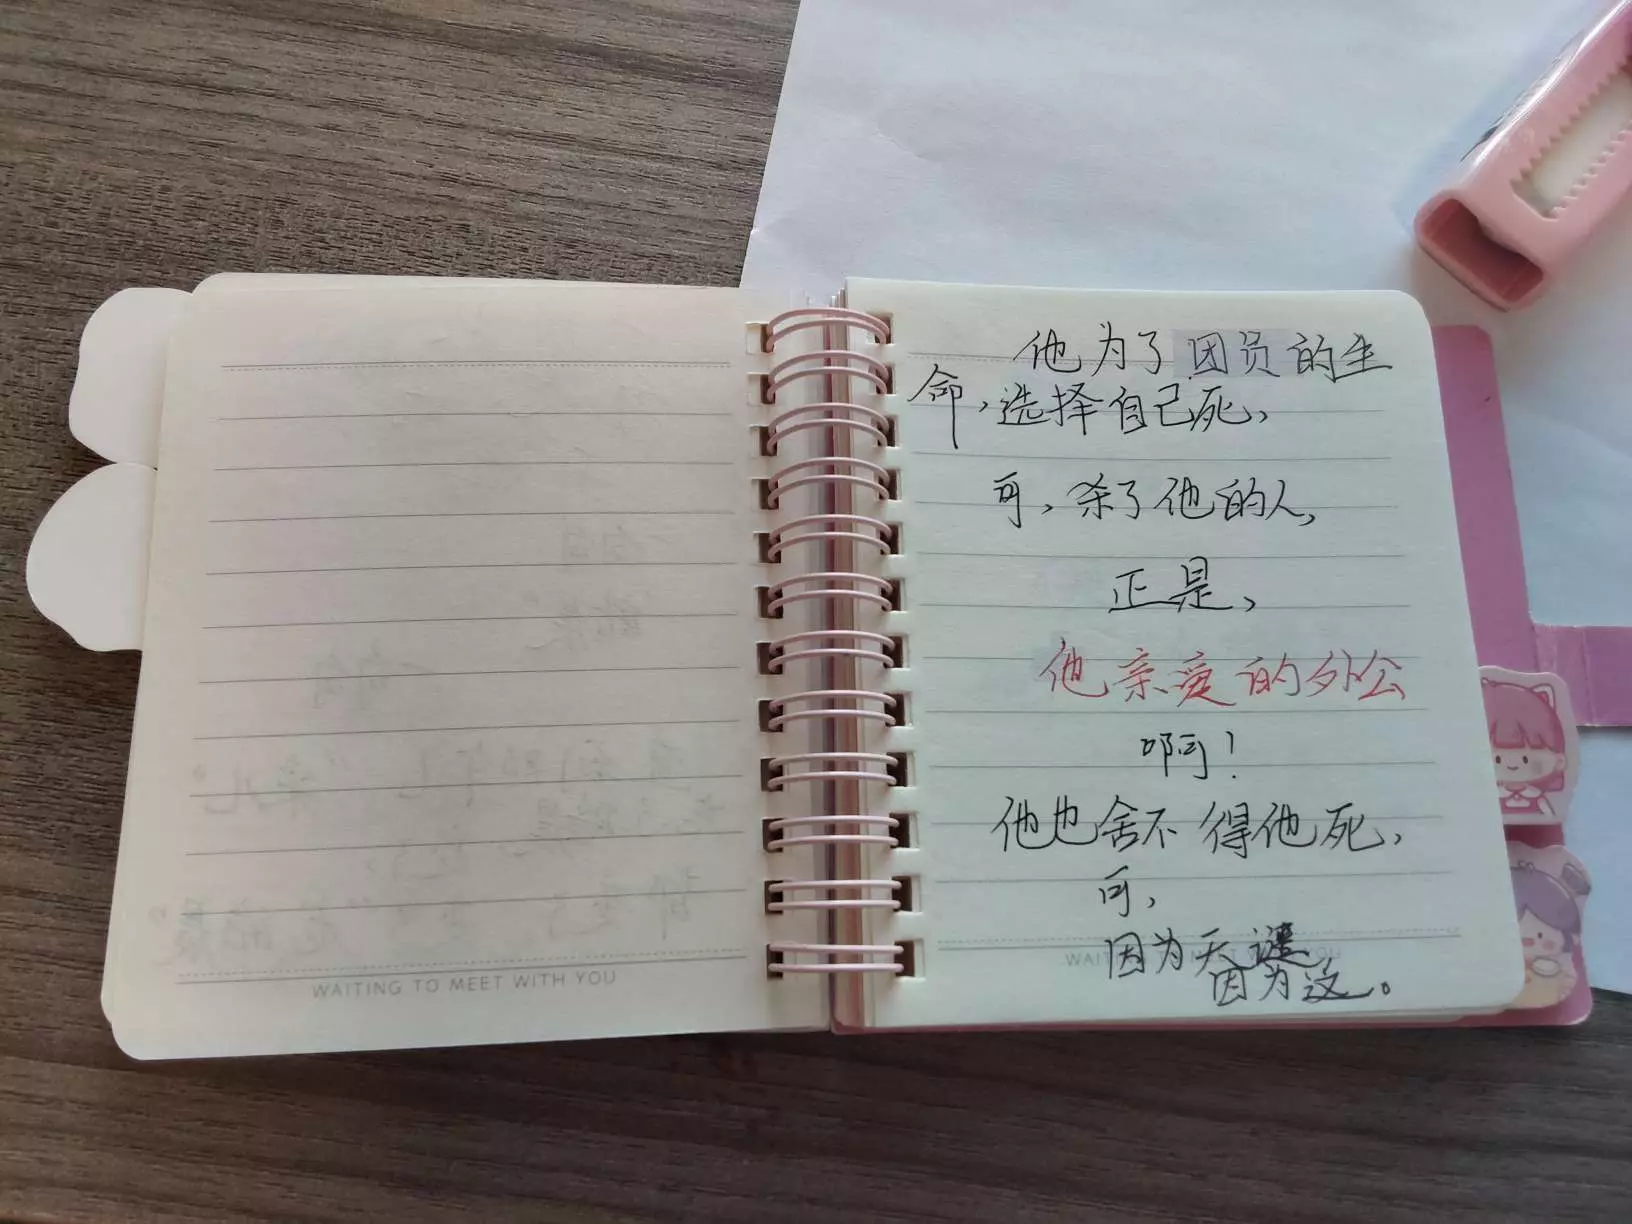 WAITING TO MEET WITH YOU
他为了团员的生
命,选择自己死,
可,杀了他的人,
正是,
他亲爱的外公
啊!
他也舍不得他死,
可,
因为天谴
因为这。